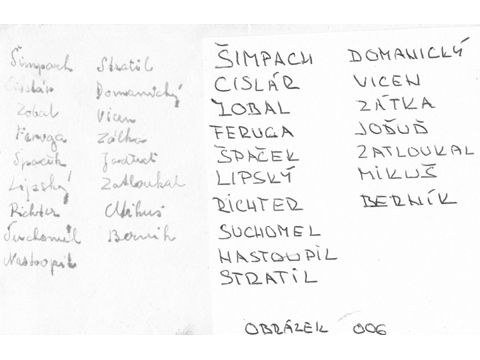 Šimpach Stratil
Cislár Domanický
Zobal Vicen
Feruga Zátka
Špaček
Lipský Zatloukal
Richter Mikuš
Suchomel Berník
Nastoupil
ŠIMPACH DOMANICKÝ
CISLÁR VICEN
ZOBAL ZÁTKA
FERUGA JOŠUŠ
ŠPAČEK ZATLOUKAL
LIPSKÝ MIKUŠ
RICHTER BERNÍK
SUCHOMEL
NASTOUPIL
STRATIL
OBRÁZEK 006